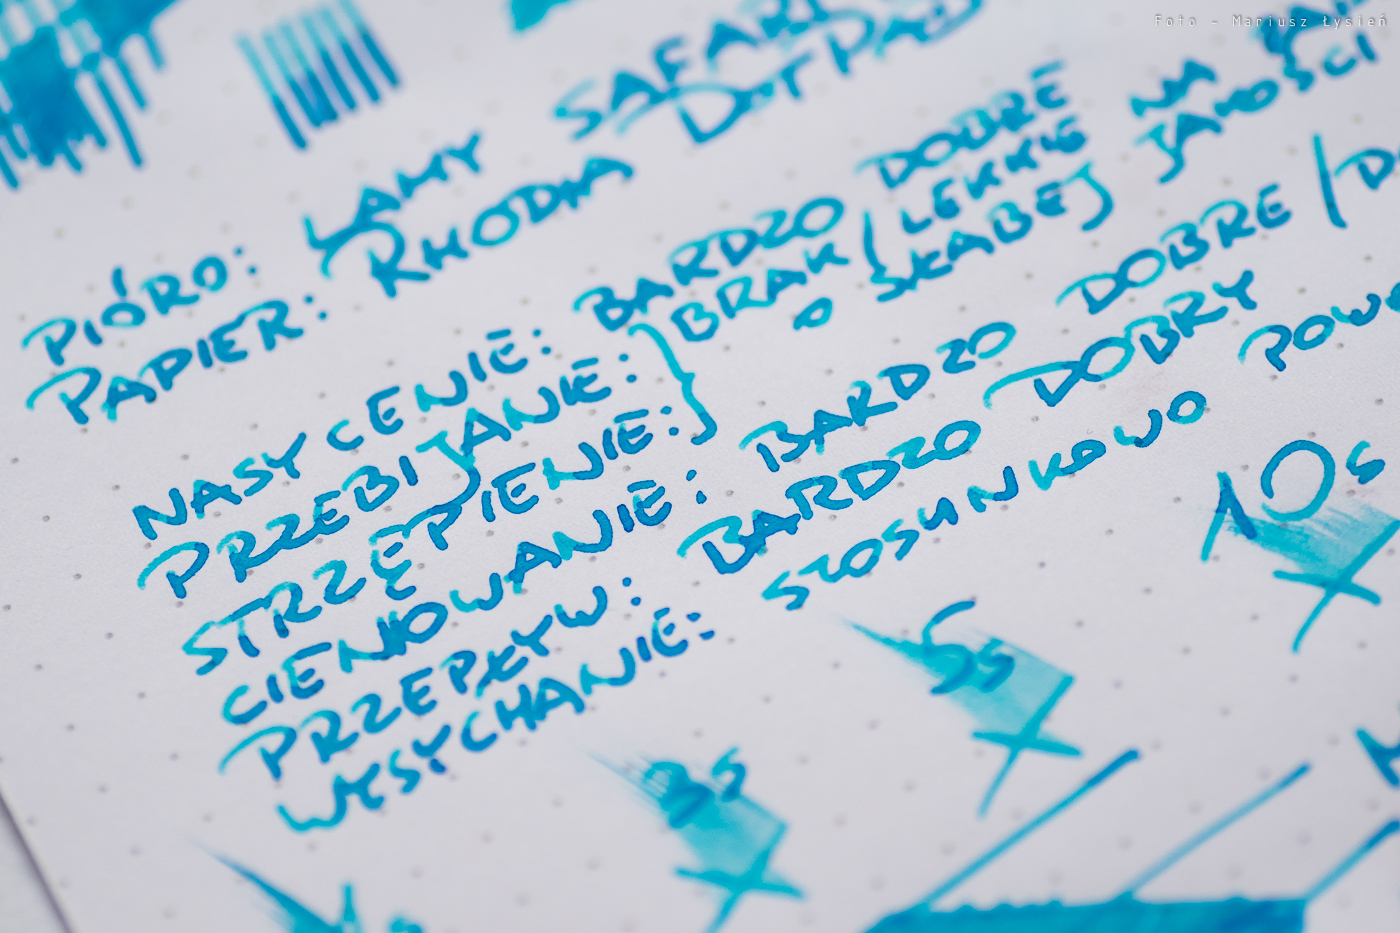 Foto - Mariusz Łysień
PIÓRO: LAMY SAFARI
PAPIER: RHODIA DOTPAD
NASYCENIE: BARDZO DOBRE
PRZEBIJANIE: } BRAK / LEKKIE NA
STRZĘPIENIE: } O SŁABEJ JAKOŚCI
CIENIOWANIE: BARDZO DOBRE /
PRZEPŁYW: BARDZO DOBRY
WYSYCHANIE: STOSUNKOWO
10s
5s
3s